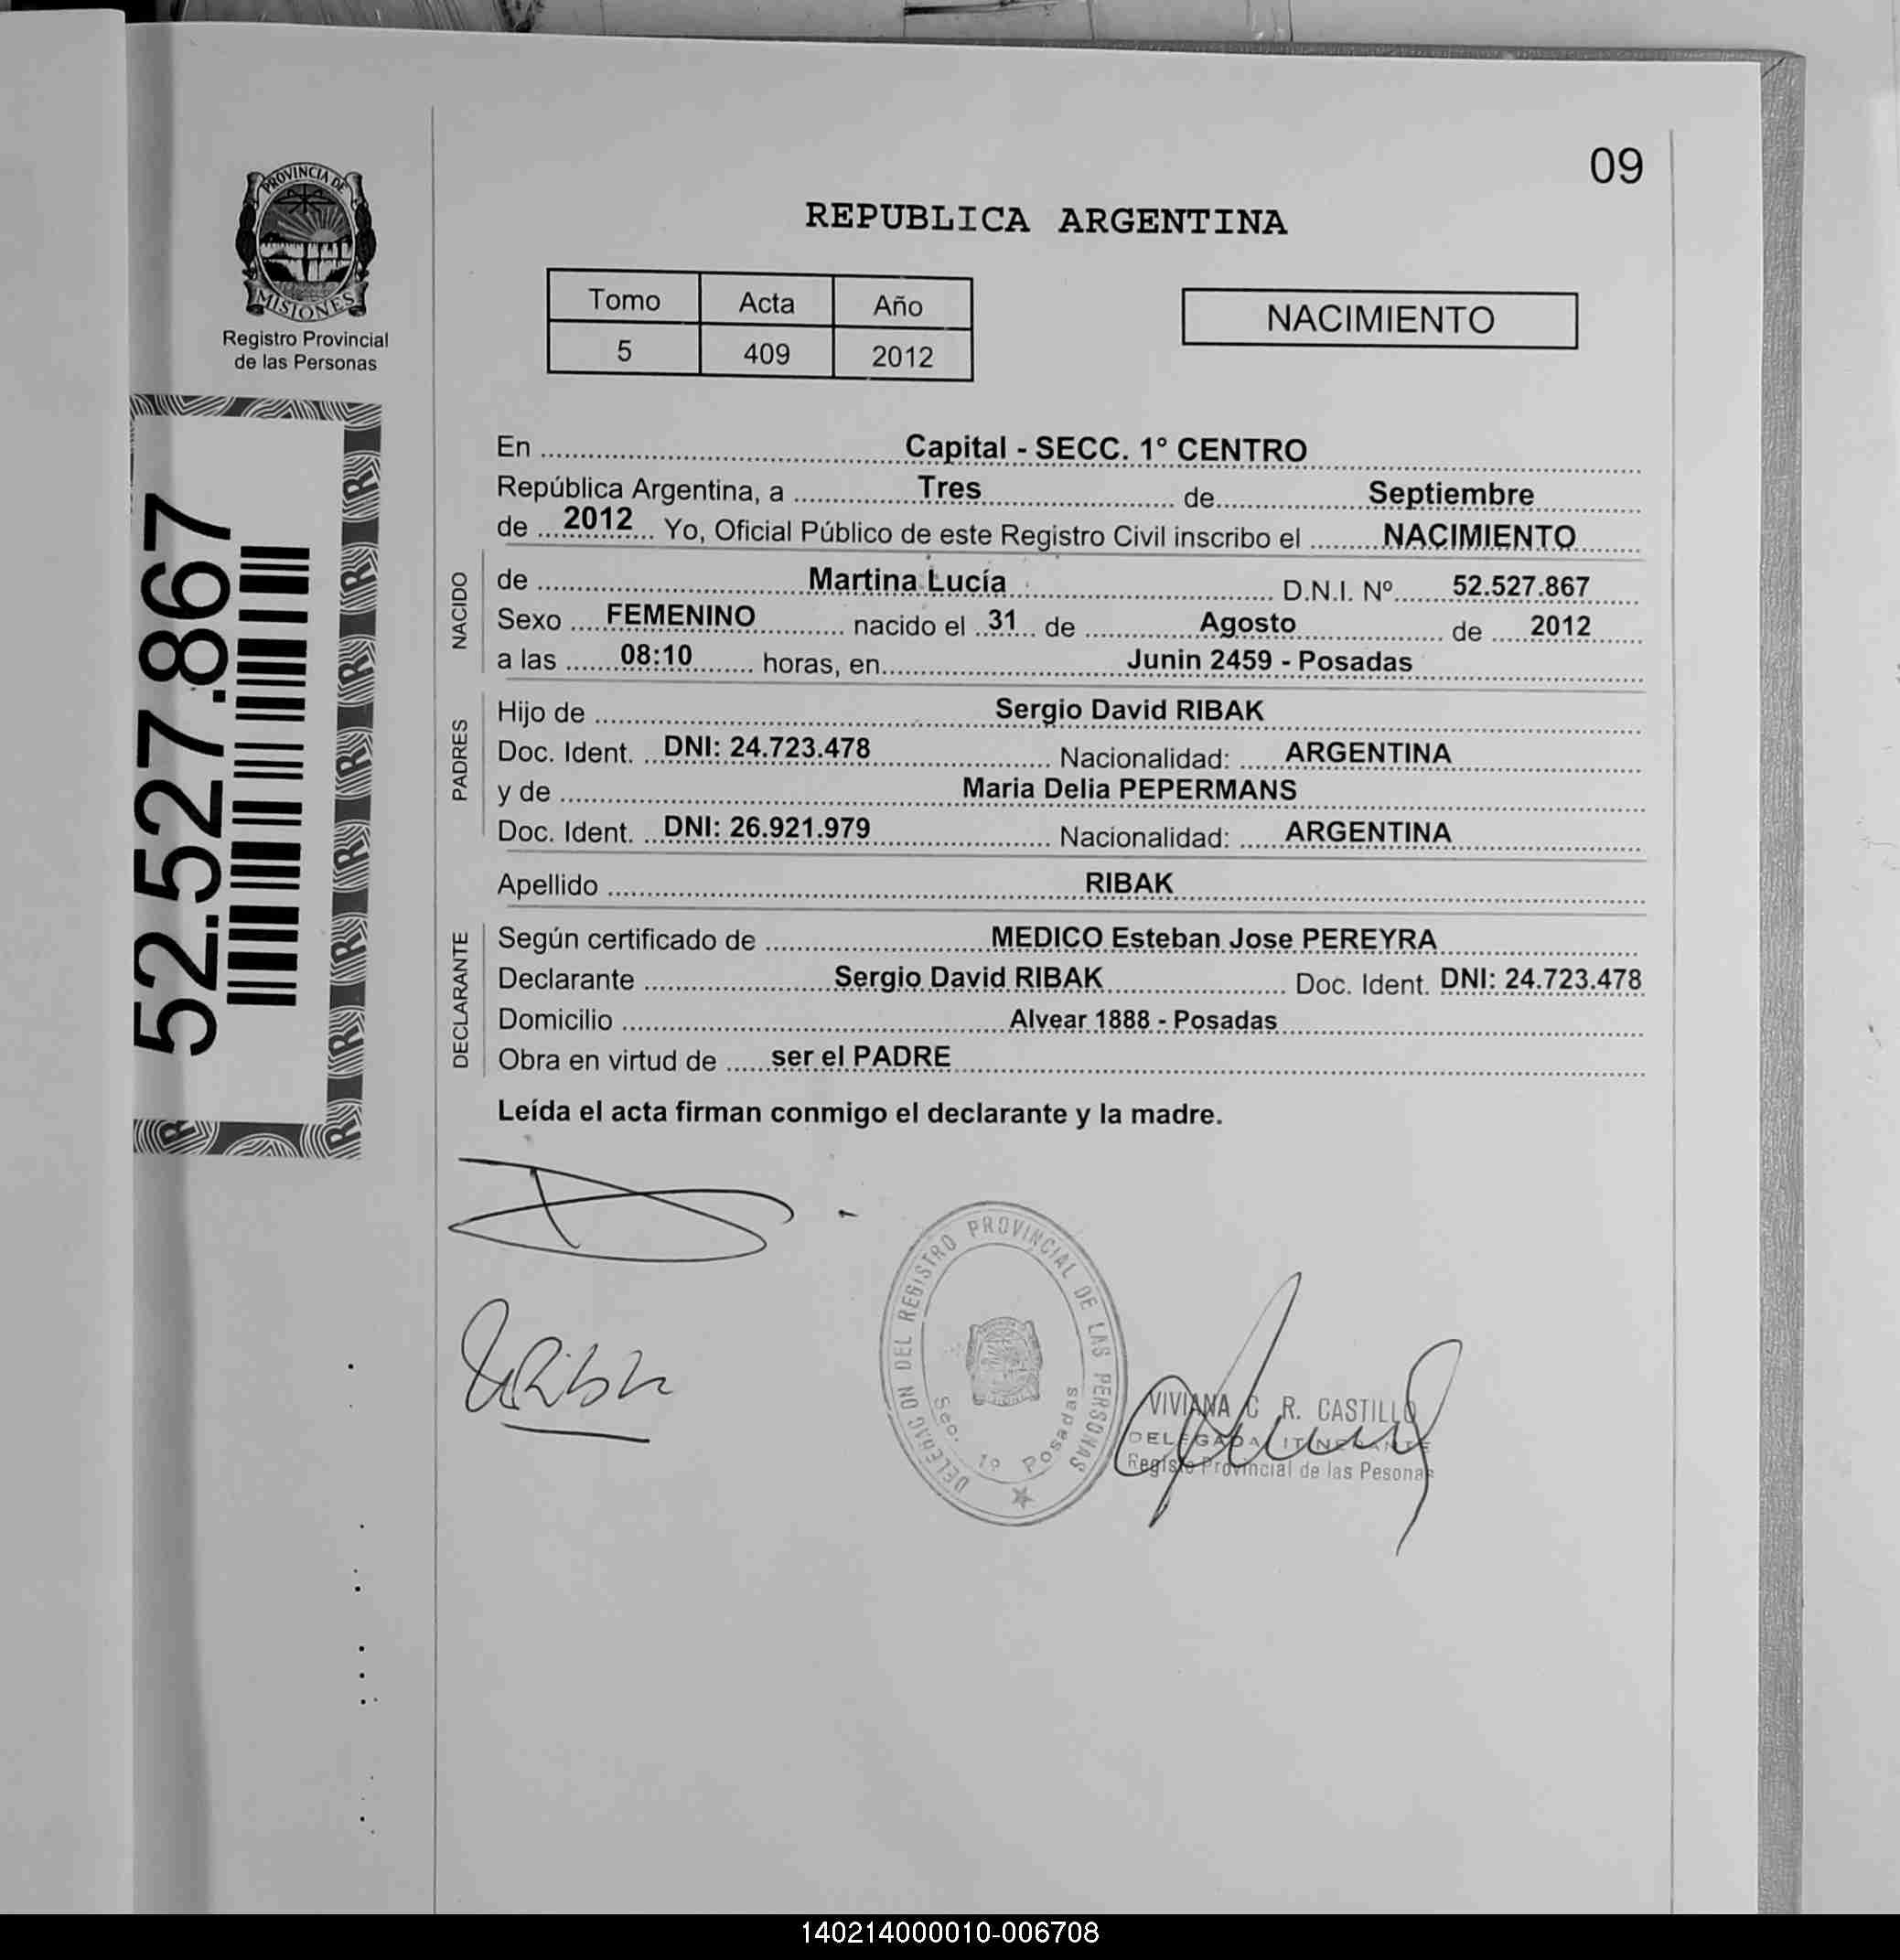 09
PROVINCIA DE
MISIONES
Registro Provincial
de las Personas
REPUBLICA ARGENTINA
Tomo Acta Año
5 409 2012
NACIMIENTO
52.527.867
En Capital - SECC. 1° CENTRO
República Argentina, a Tres de Septiembre
de 2012 Yo, Oficial Público de este Registro Civil inscribo el NACIMIENTO
NACIDO
de Martina Lucía D.N.I. Nº 52.527.867
Sexo FEMENINO nacido el 31 de Agosto de 2012
a las 08:10 horas, en Junin 2459 - Posadas
PADRES
Hijo de Sergio David RIBAK
Doc. Ident. DNI: 24.723.478 Nacionalidad: ARGENTINA
y de Maria Delia PEPERMANS
Doc. Ident. DNI: 26.921.979 Nacionalidad: ARGENTINA
Apellido RIBAK
DECLARANTE
Según certificado de MEDICO Esteban Jose PEREYRA
Declarante Sergio David RIBAK Doc. Ident. DNI: 24.723.478
Domicilio Alvear 1888 - Posadas
Obra en virtud de ser el PADRE
Leída el acta firman conmigo el declarante y la madre.
DELEGACION DEL REGISTRO PROVINCIAL DE LAS PERSONAS
Sec. 1º Posadas
VIVIANA C. R. CASTILLO
DELEGADA ITINERANTE
Registo Provincial de las Pesonas
140214000010-006708